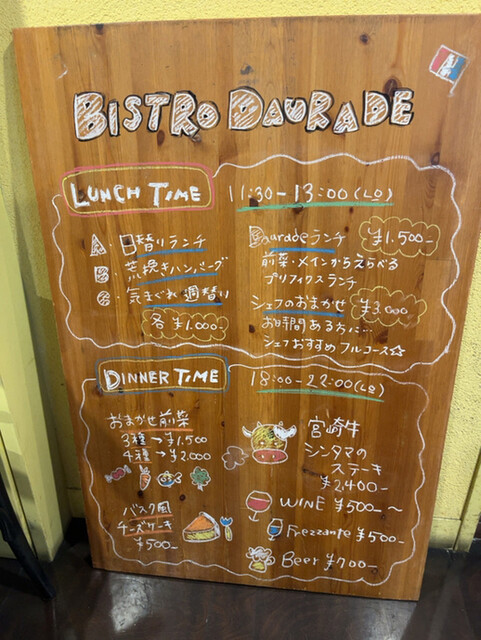 BISTRO DAURADE
LUNCH TIME
11:30-13:00(LO)
A. 日替りランチ
B. 荒挽きハンバーグ
C. 気まぐれ週替り
各¥1.000-
Dauradeランチ ¥1.500-
前菜・メインからえらべる
プリフィクスランチ
シェフのおまかせ ¥3.000
お時間ある方に…
シェフおすすめフルコース☆
DINNER TIME
18:00-22:00(LO)
おまかせ前菜
3種→¥1,500
4種→¥2,000
バスク風
チーズケーキ
¥500-
宮崎牛
シンタマの
ステーキ
¥2,400-
WINE ¥500-～
Frezzante ¥500-
Beer ¥700-